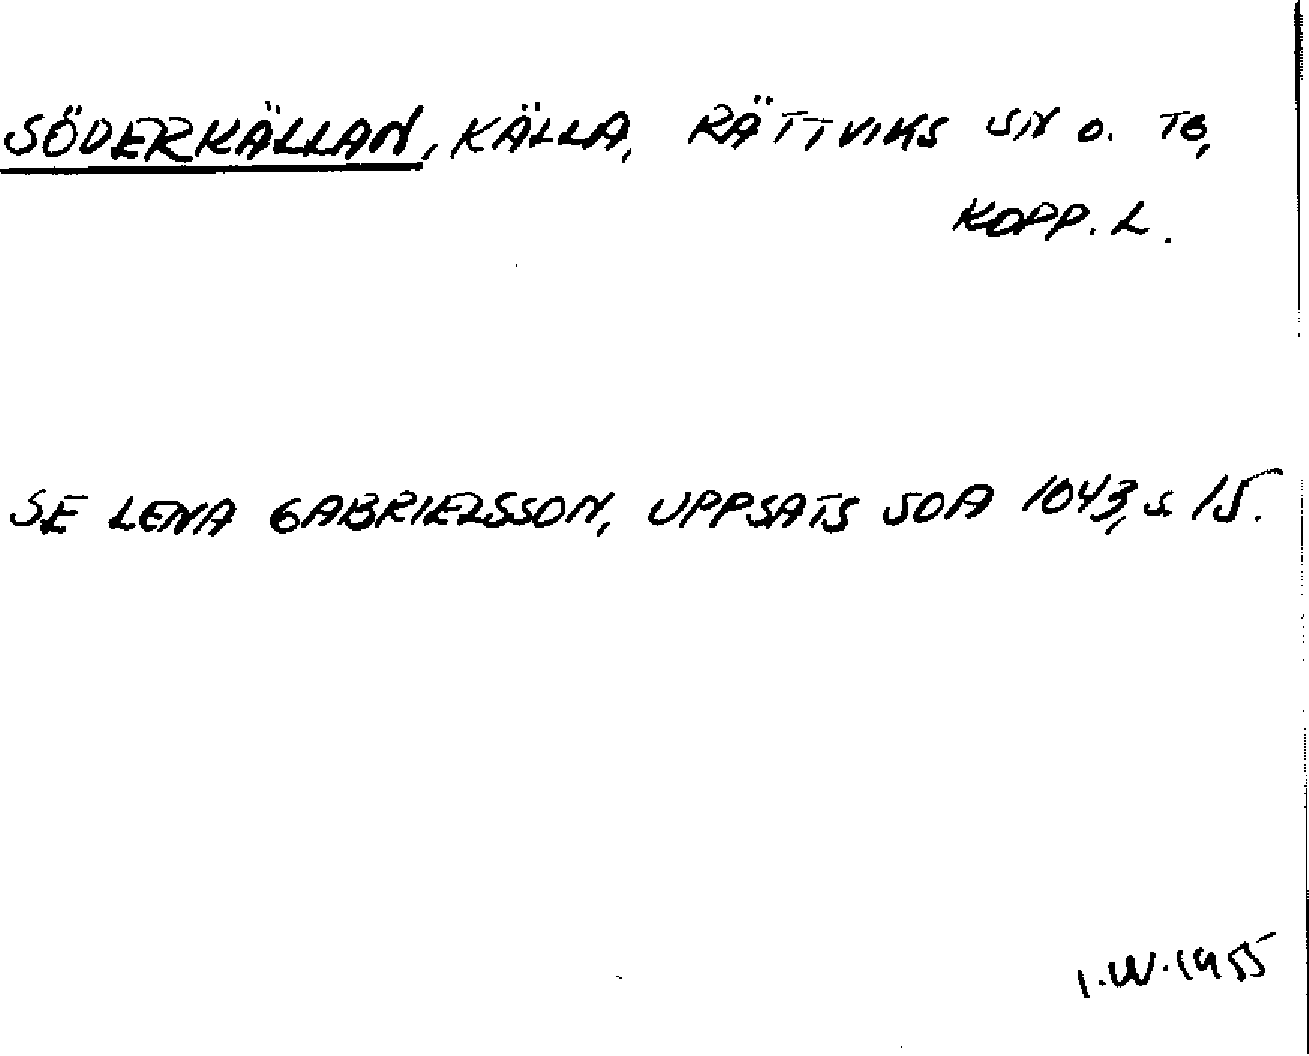 SÖDERKÄLLAN, KÄLLA, RÄTTVIKS SN O. TG,
KOPP. L.
SE LENA GABRIELSSON, UPPSATS SOA 1043, S. 15.
I.W. 1955